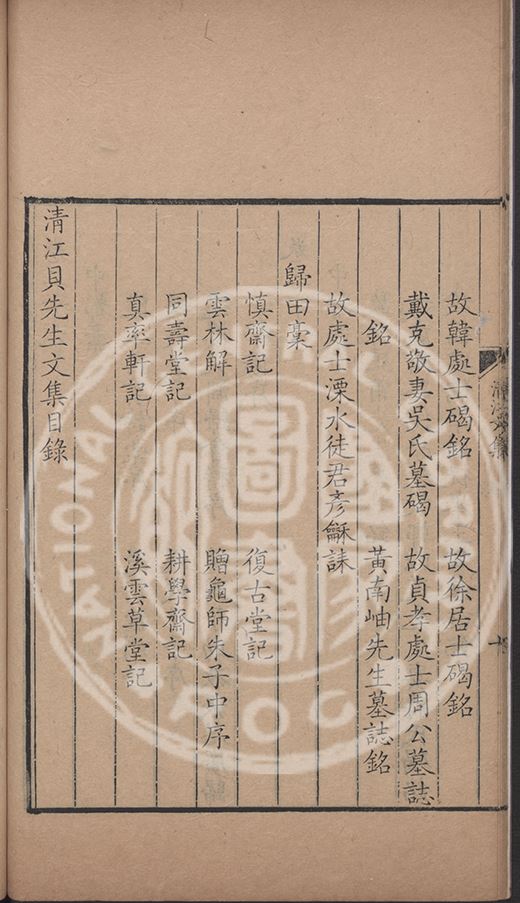 故韓處士碣銘　故徐居士碣銘
戴克敬妻吳氏墓碣　故貞孝處士周公墓誌
銘　黃南岫先生墓誌銘
故處士溧水徒君彥龢誄
歸田稾
慎齋記　復古堂記
雲林解　贈龜師朱子中序
同壽堂記　耕學齋記
真率軒記　溪雲草堂記
清江貝先生文集目錄